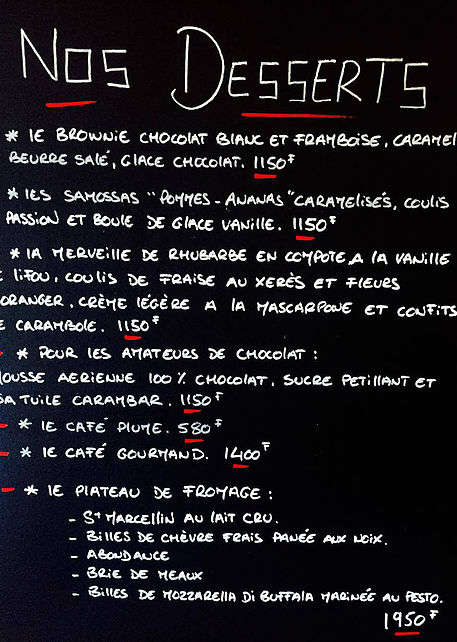 NOS DESSERTS
* LE BROWNIE CHOCOLAT BLANC ET FRAMBOISE, CARAMEL
BEURRE SALÉ, GLACE CHOCOLAT. 1150F
* LES SAMOSSAS "POMMES-ANANAS" CARAMELISÉS, COULIS
PASSION ET BOULE DE GLACE VANILLE. 1150F
* LA MERVEILLE DE RHUBARBE EN COMPOTE, A LA VANILLE
LIFOU, COULIS DE FRAISE AU XERÈS ET FLEURS
ORANGER. CRÈME LÉGÈRE A LA MASCARPONE ET CONFITS
E CARAMBOLE. 1150F
* POUR LES AMATEURS DE CHOCOLAT :
OUSSE AERIENNE 100% CHOCOLAT. SUCRE PETILLANT ET
SA TUILE CARAMBAR. 1150F
* LE CAFÉ PLUME. 580F
* LE CAFÉ GOURMAND. 1400F
* LE PLATEAU DE FROMAGE :
- ST MARCELLIN AU LAIT CRU.
- BILLES DE CHÈVRE FRAIS PANÉE AUX NOIX.
- ABONDANCE
- BRIE DE MEAUX
- BILLES DE MOZZARELLA DI BUFFALA MARINÉE AU PESTO.
1950F